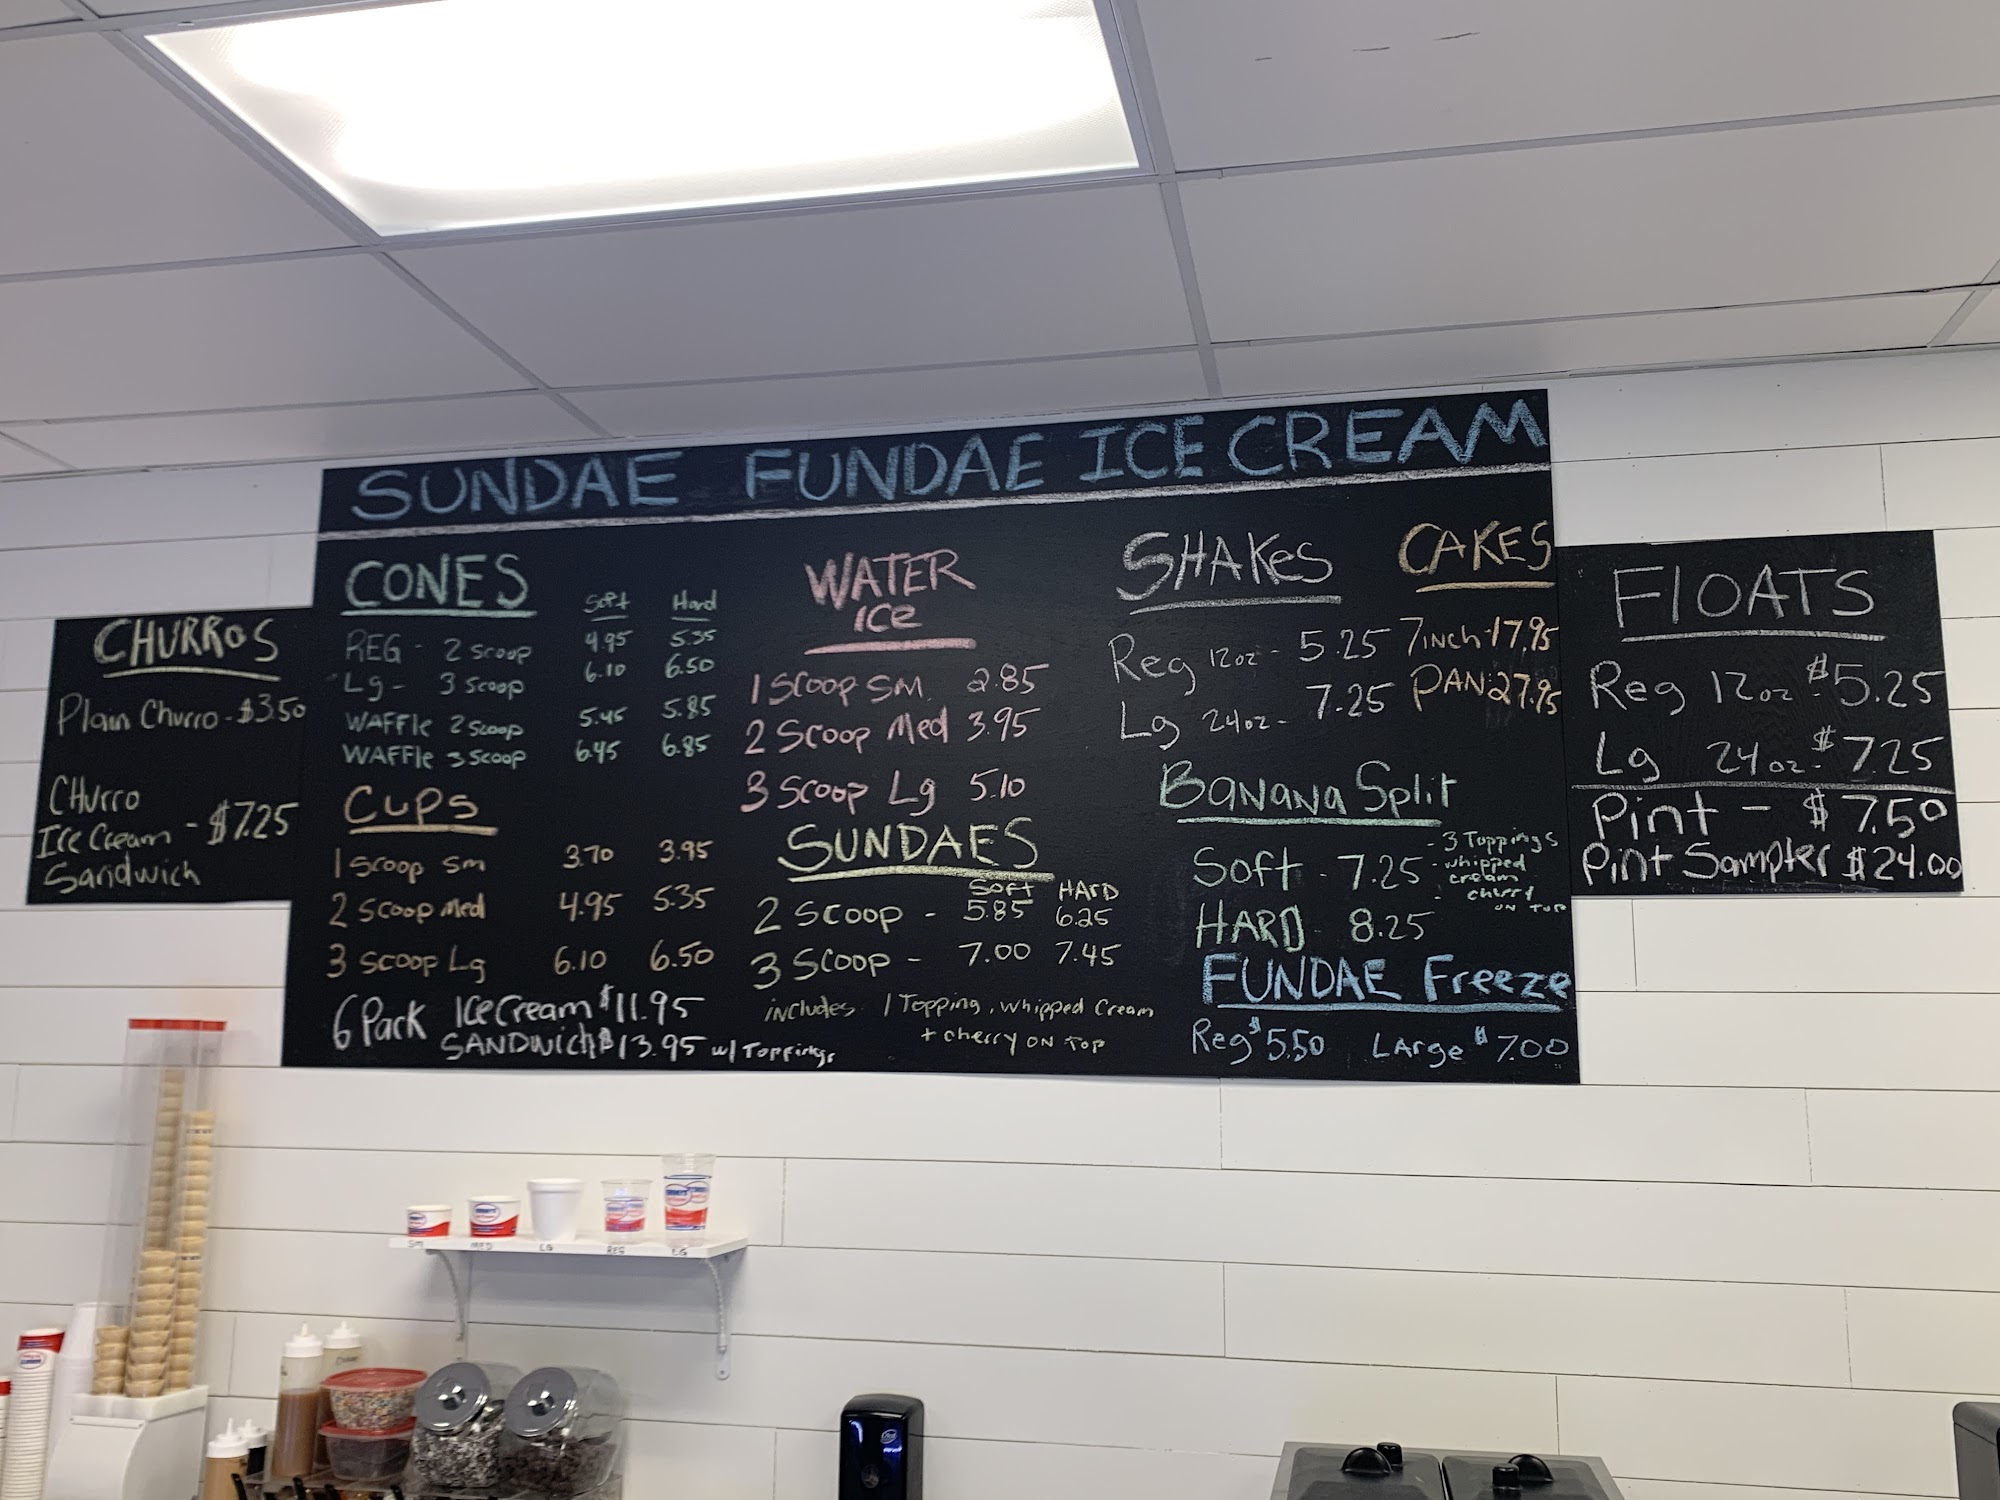 SUNDAE FUNDAE ICE CREAM
CHURROS
Plain Churro - $3.50
CHurro
Ice Cream - $7.25
Sandwich
CONES
Soft Hard
REG - 2 scoop 4.95 5.35
Lg - 3 scoop 6.10 6.50
WAFFLE 2 scoop 5.45 5.85
WAFFLE 3 scoop 6.45 6.85
CUPS
1 scoop sm 3.70 3.95
2 scoop med 4.95 5.35
3 scoop Lg 6.10 6.50
6 Pack Ice Cream $11.95
SANDwich $13.95 w/ Toppings
WATER
Ice
1 Scoop SM. 2.85
2 Scoop Med 3.95
3 Scoop Lg 5.10
SUNDAES
SOFT HARD
2 Scoop - 5.85 6.25
3 Scoop - 7.00 7.45
includes 1 Topping, whipped Cream
+ cherry ON TOP
SHAKes
Reg 12oz - 5.25
Lg 24oz - 7.25
CAKES
7inch-17.95
PAN-27.95
BaNaNa Split
Soft - 7.25
HARD - 8.25
- 3 Toppings
- whipped
cream
- cherry
ON TOP
FUNDAE Freeze
Reg $5.50 LArge $7.00
FlOATS
Reg 12oz - $5.25
Lg 24oz - $7.25
Pint - $7.50
Pint Sampler $24.00
SM MED LG REG LG